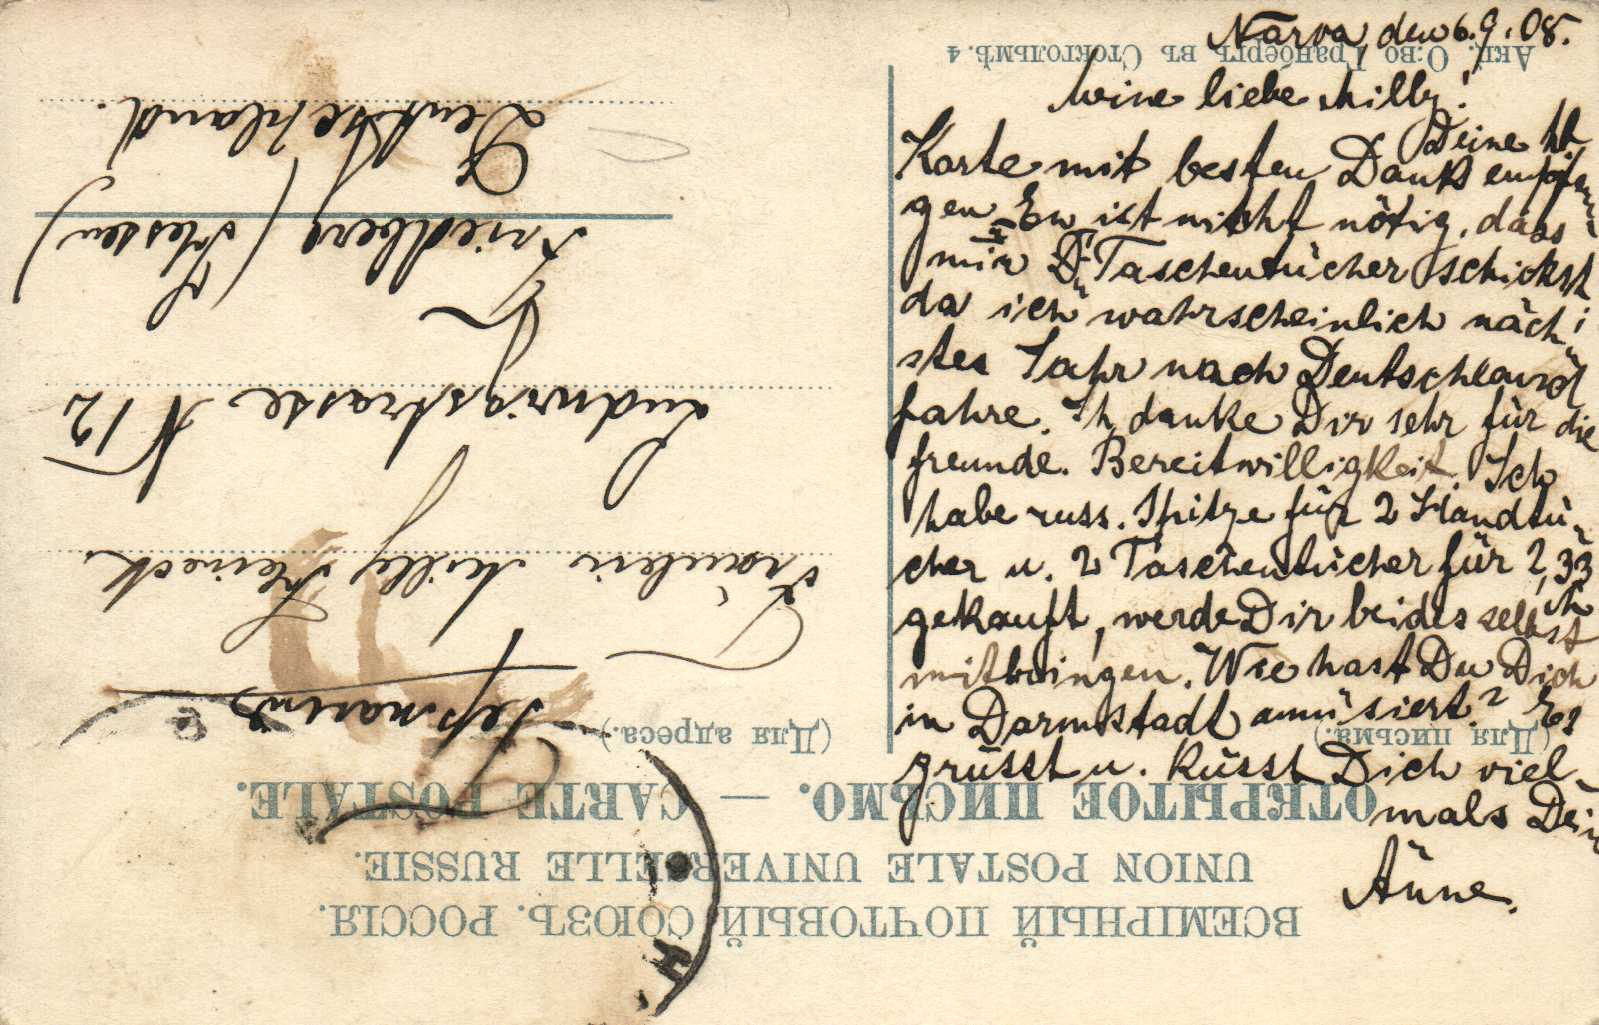 Narva, den 6.9.08.
Meine liebe Milly!
Deine lb.
Karte mit besten Dank empfan
gen. Es ist nicht nötig, dass
mir D. Taschentücher schickst
da ich wahrscheinlich näch
stes Jahr nach Deutschland
fahre. Ich danke Dir sehr für die
freunde. Bereitwilligkeit. Ich
habe russ. Spitze für 2 Handtü-
cher u. 2 Taschentücher für 2,33
gekauft, werde Dir beides selbst
mitbringen. Wie hast Du Dich
in Darmstadt amüsiert? Es
grüsst u. küsst Dich viel-
mals Dein
Änne.
ВСЕМІРНЫЙ ПОЧТОВЫЙ СОЮЗЪ. РОССІЯ.
UNION POSTALE UNIVERSELLE RUSSIE.
ОТКРЫТОЕ ПИСЬМО. — CARTE POSTALE.
(Для письма.)
(Для адреса.)
Германія
Fräulein Milly Heineck
Ludwigstrasse N 12
Friedberg (Hessen)
Deutschland.
Акц. О-во Гранбергъ въ Стокгольмѣ. 4